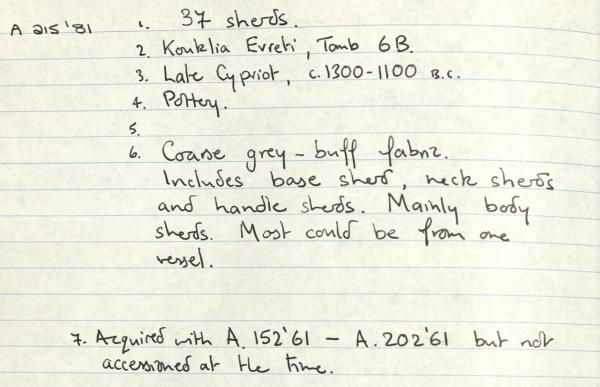 A 215'81
1. 37 sherds.
2. Kouklia Evreti, Tomb 6B.
3. Late Cypriot, c.1300-1100 B.C.
4. Pottery.
5.
6. Coarse grey-buff fabric.
Includes base sherd, neck sherds
and handle sherds. Mainly body
sherds. Most could be from one
vessel.
7. Acquired with A.152'61 - A.202'61 but not
accessioned at the time.